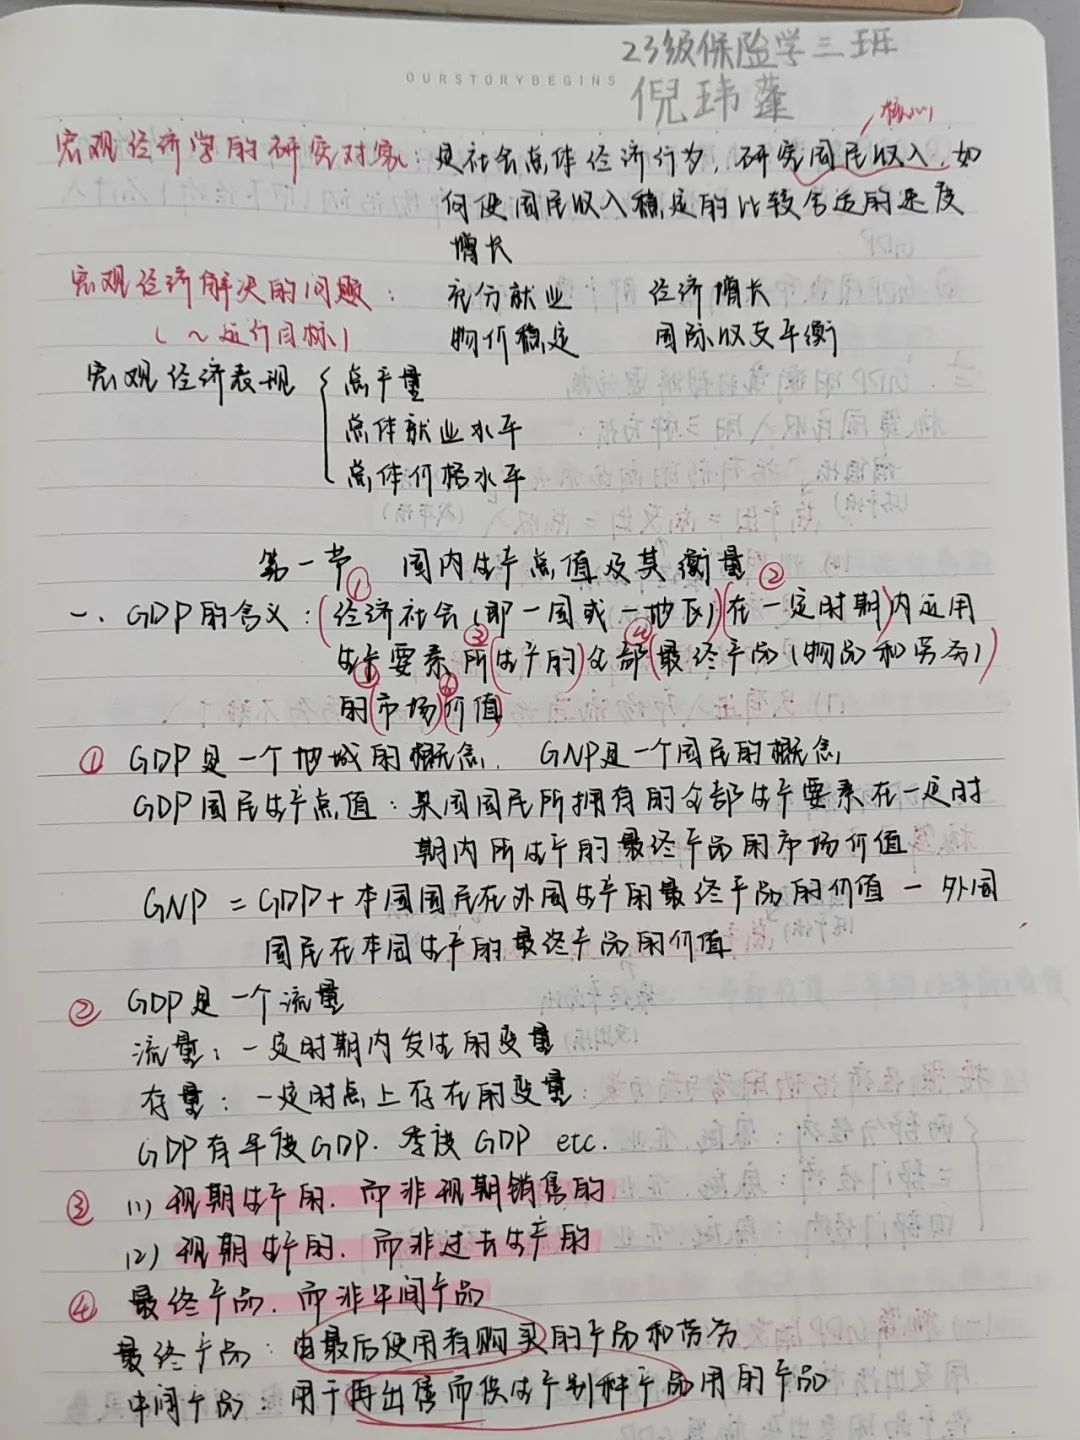 23级保险学三班
OURSTORYBEGINS
倪玮蓬
核心
宏观经济学的研究对象：是社会总体经济行为，研究国民收入，如
何使国民收入稳定的比较合适的速度
增长
宏观经济解决的问题： 充分就业 经济增长
(~运行目标) 物价稳定 国际收支平衡
宏观经济表现 { 总产量
总体就业水平
总体价格水平
第一节 国内生产总值及其衡量
一、GDP的含义：①(经济社会(即一国或一地区)②(在一定时期)内运用
生产要素所③(生产的)全部④(最终产品(物品和劳务))
的⑤(市场)⑥(价值)
① GDP是一个地域的概念，GNP是一个国民的概念
GDP国民生产总值：某国国民所拥有的全部生产要素在一定时
期内所生产的最终产品的市场价值
GNP = GDP + 本国国民在外国生产的最终产品的价值 － 外国
国民在本国生产的最终产品的价值
② GDP是一个流量
流量：一定时期内发生的变量
存量：一定时点上存在的变量
GDP有年度GDP. 季度GDP etc.
③ (1) 现期生产的，而非现期销售的
(2) 现期生产的，而非过去生产的
④ 最终产品，而非中间产品
最终产品：由最后使用者购买的产品和劳务
中间产品：用于再出售而供生产别种产品用的产品